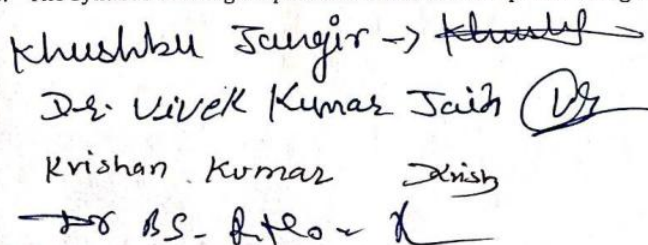 Khushbu Jangir -> Khushbu
Dr. Vivek Kumar Jain
Krishan Kumar Krish
Dr BS-